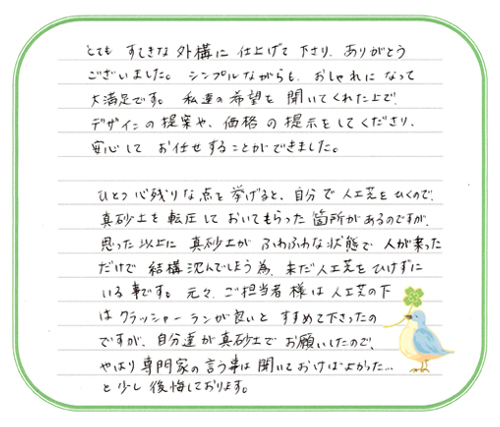 とても すてきな 外構に 仕上げて 下さり、ありがとう
ございました。 シンプルながらも、おしゃれに なって
大満足です。 私達の希望を 聞いてくれた上で、
デザインの 提案や、価格の 提示をしてくださり、
安心して お任せすることができました。
ひとつ 心残りな点を 挙げると、自分で 人工芝をひくので、
真砂土を 転圧して おいてもらった 箇所があるのですが、
思った以上に 真砂土が ふわふわな状態で 人が乗った
だけで 結構 沈んでしまう為、未だ人工芝をひけずに
いる 事です。 元々、ご担当者様は人工芝の下
は クラッシャーランが良いと すすめて下さったの
ですが、自分達が真砂土で お願いしたので、
やはり 専門家の言う事は 聞いておけばよかった…
と少し 後悔しております。